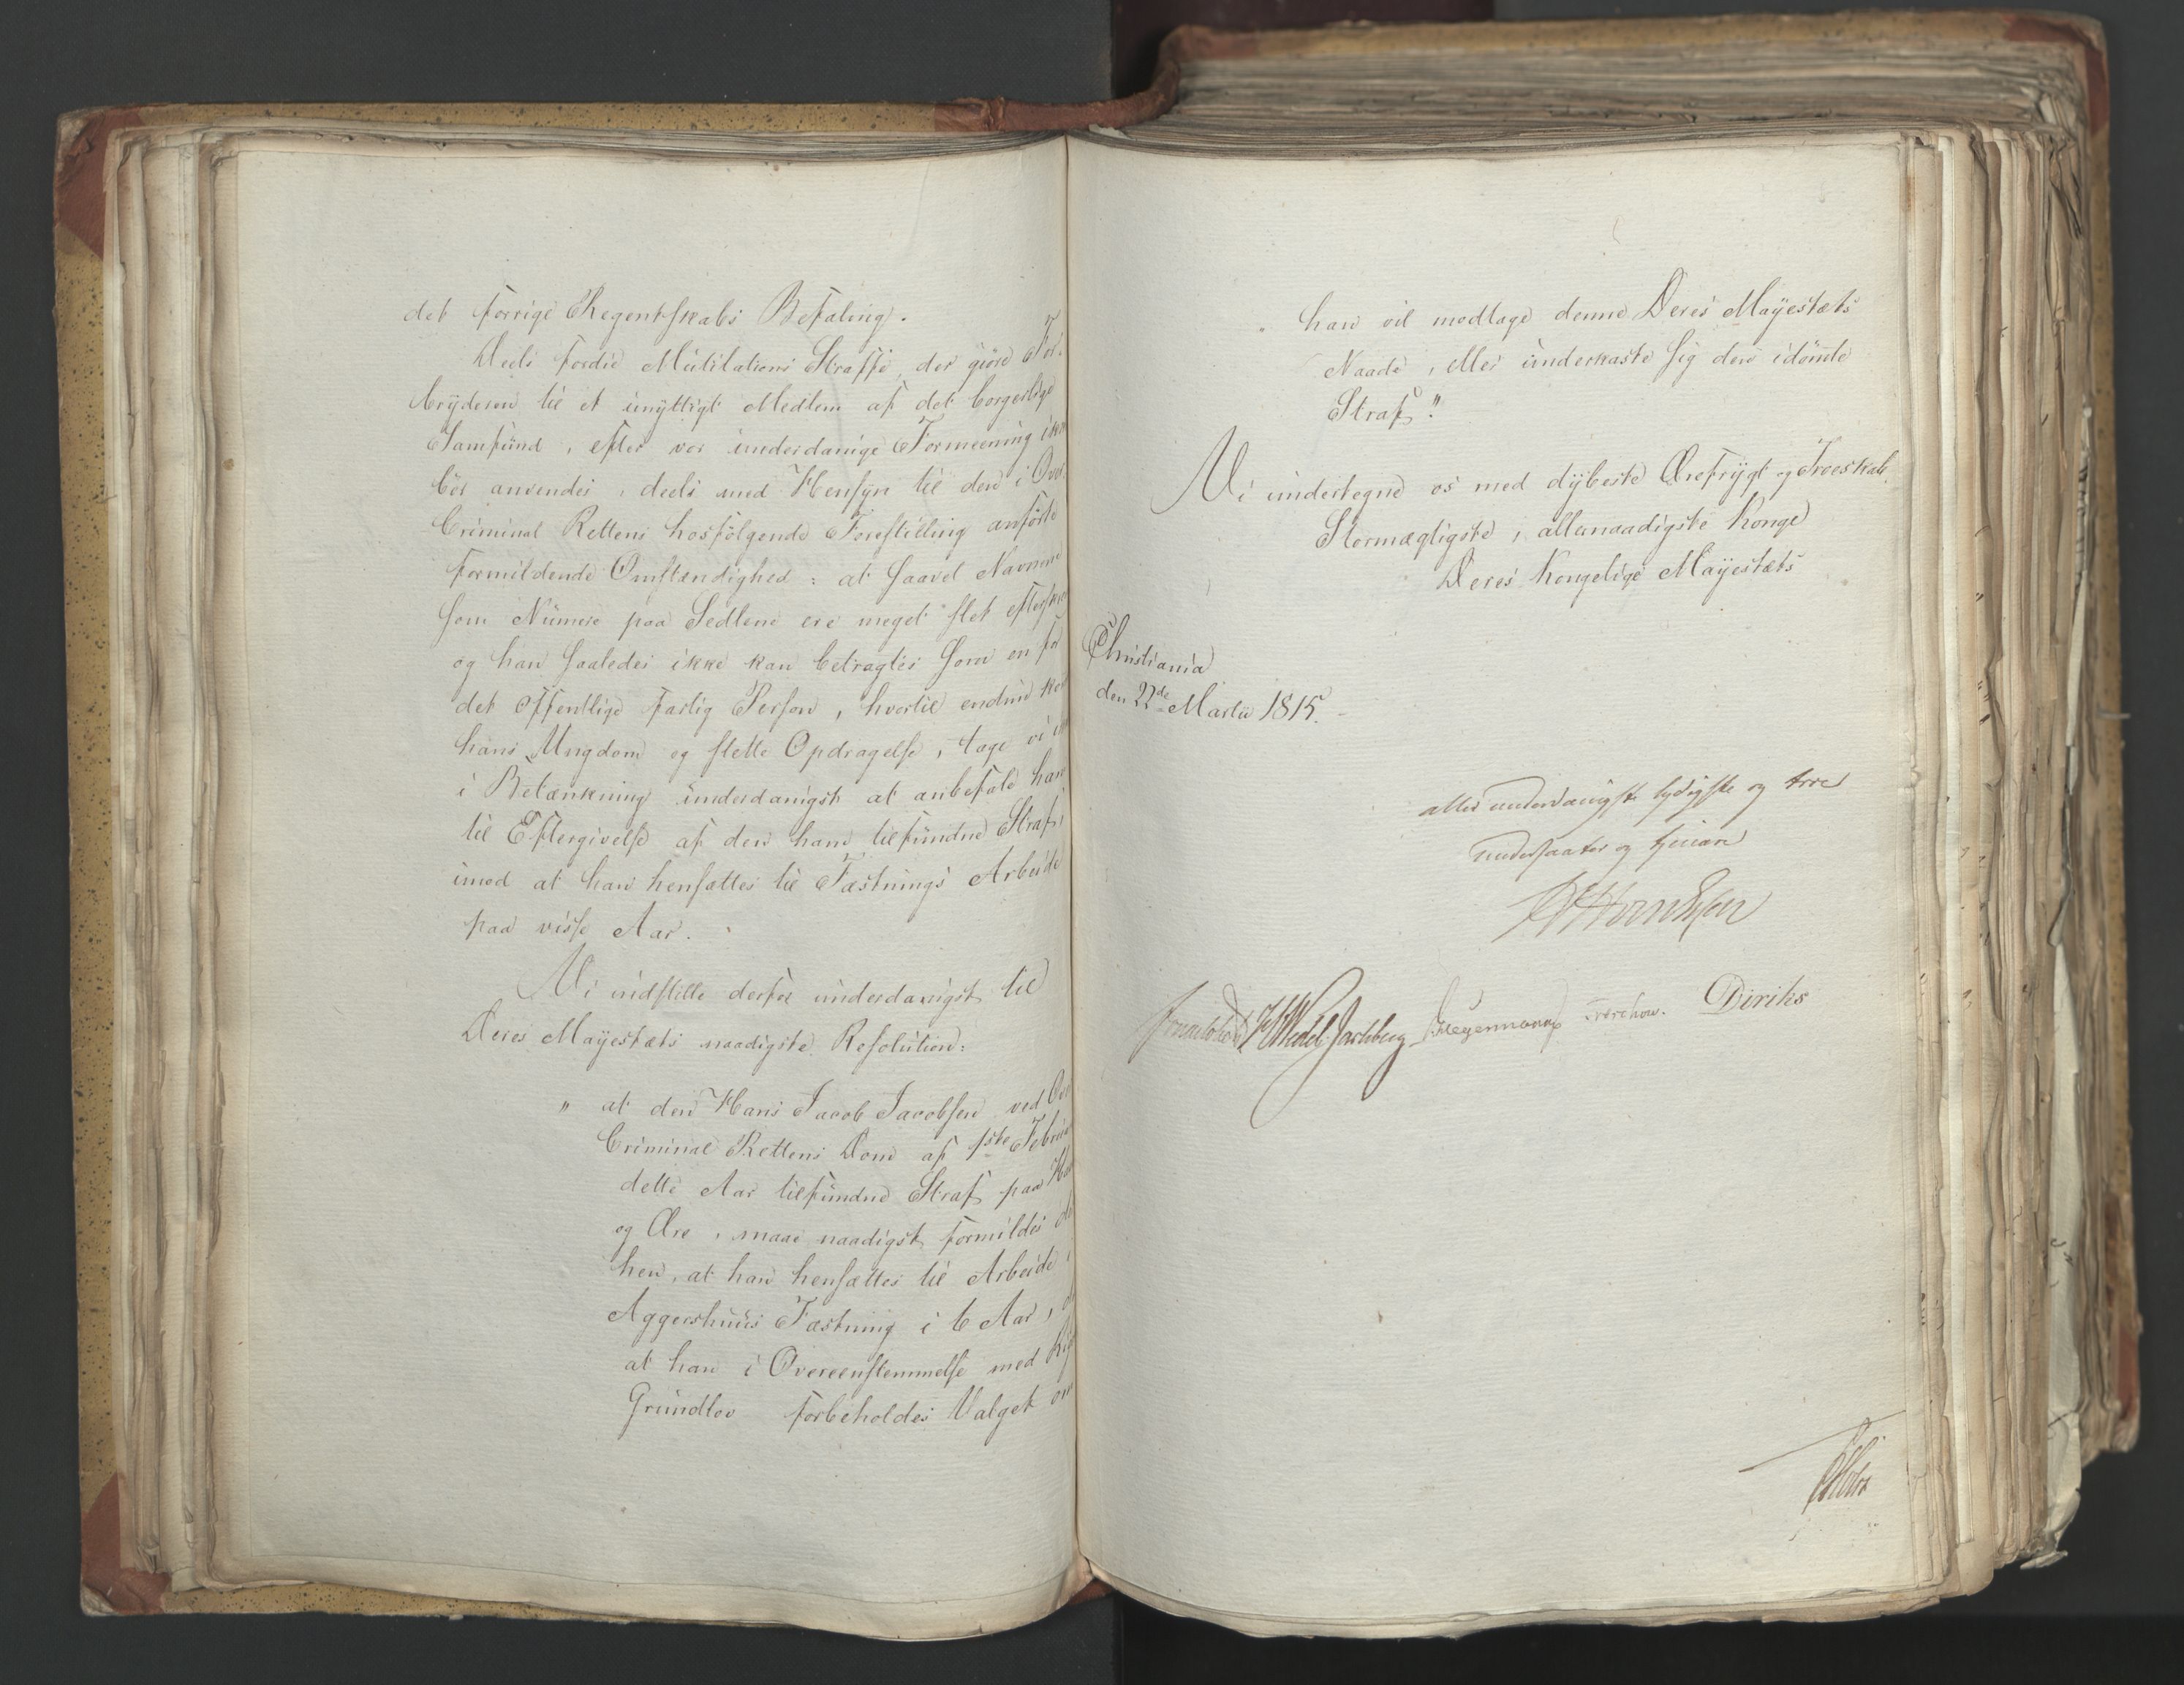 det forrige Regentskabs Befaling.
Deels fordie Mutilations Straffe, der giøre For-
bryderen til et unyttigt Medlem af det borgerlige
Samfund, efter vor underdanige Formeening ikke
bör anvendes, deels med Hensyn til den i Over
Criminal Rettens hosfölgende Forestilling anförte
formildende Omstændighed: at saavel Navnene
som Numere paa Sedlene ere meget slet
og han saaledes ikke kan betragtes som en for
det offentlige farlig Person, hvortil endnu
hans Ungdom og slette Opdragelse, tage vi
i Betænkning underdanigst at anbefale ham
til Eftergivelse af den ham tilfundne Straf,
imod at han hensættes til Fæstnings Arbeide
paa visse Aar.
Vi indstille derfor underdanigst til
Deres Mayestæts naadigste Resolution:
" at den Hans Jacob Jacobsen ved
Criminal Rettens Dom af 1ste
dette Aar tilfundne Straf paa
og Ære, maae naadigst formildes
hen, at han hensættes til Arbeide i
Aggershuus Fæstning i 6 Aar,
at han i Overeenstemmelse med
Grundlov forbeholdes Valget
" han vil modtage denne Deres Mayestæts
Naade, eller underkaste sig den idömte
Straf."
Vi undertegne os med dybeste Ærefrygt og Troeskab.
Stormægtigste, allernaadigste Konge
Deres Kongelige Mayestæts
Christiania
den 22de Martii 1815.
allerunderdanigste lydigste og troe
undersaatter og tjenere
Sommerhielm Wedel Jarlsberg Hegermann Treschow. Diriks